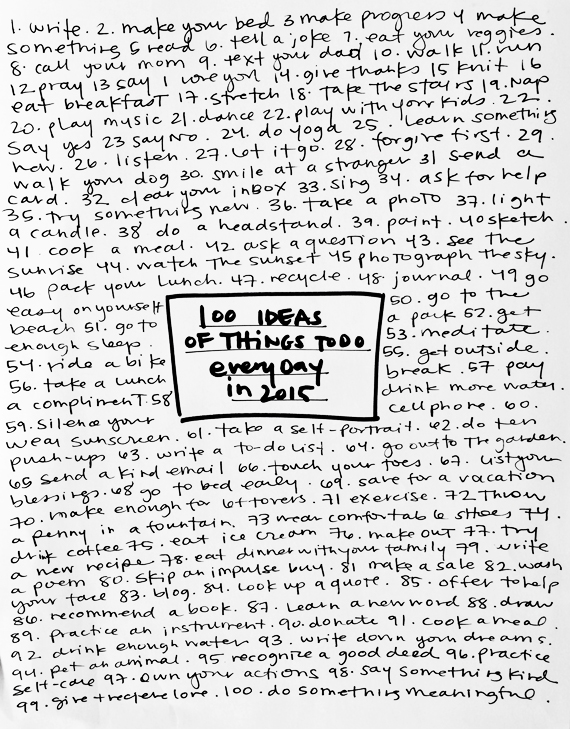 1. write. 2. make your bed 3 make progress 4 make
something 5 read 6. tell a joke 7. eat your veggies.
8. call your mom 9. text your dad 10. walk 11. run
12. pray 13 say I love you 14. give thanks 15 knit 16
eat breakfast 17. stretch 18. take the stairs 19. Nap
20. play music 21. dance 22. play with your kids. 22.
Say yes 23 say No. 24. do yoga 25. learn something
new. 26. listen. 27. let it go. 28. forgive first. 29.
walk your dog 30. smile at a stranger 31 send a
card. 32 clear your inbox 33. sing 34. ask for help
35. try something new. 36. take a photo 37. light
a candle. 38 do a headstand. 39. paint. 40 sketch.
41 cook a meal. 42. ask a question 43. see the
sunrise 44. watch the sunset 45 photograph the sky.
46 pack your lunch. 47. recycle. 48. journal. 49 go
easy on yourself 50. go to the
beach 51. go to a park 52. get
enough sleep. 53. meditate.
54. ride a bike 55. get outside.
56. take a lunch break. 57 pay
a compliment. 58 drink more water.
59. Silence your cellphone. 60.
wear sunscreen. 61. take a self-portrait. 62. do ten
push-ups 63. write a to-do list. 64. go out to the garden.
65 send a kind email 66. touch your toes. 67. list your
blessings. 68 go to bed early. 69. save for a vacation
70. make enough for leftovers. 71 exercise. 72 Throw
a penny in a fountain. 73 wear comfortable shoes 74.
drink coffee 75. eat ice cream 76. make out 77. Try
a new recipe 78. eat dinner with your family 79. write
a poem 80. skip an impulse buy. 81 make a sale 82. wash
your face 83. blog. 84. look up a quote. 85. offer to help
86. recommend a book. 87. Learn a new word 88. draw
89. practice an instrument. 90. donate 91. cook a meal.
92 drink enough water 93. write down your dreams.
94. pet an animal. 95 recognize a good deed 96. practice
self-care 97. own your actions 98. say something kind
99. give + receive love. 100. do something meaningful.
100 IDEAS
OF THINGS TO DO
everyday
in 2015